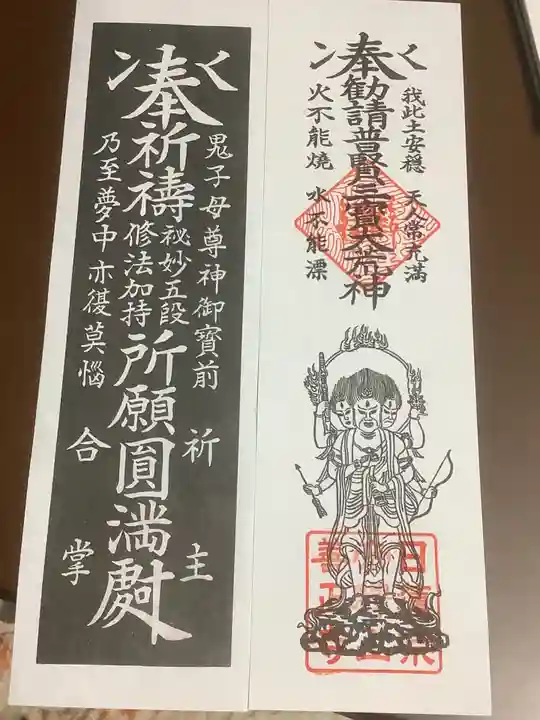 我此土安穏 天人常充満
奉勧請普賢三寶大荒神
火不能燒 水不能漂
鬼子母尊神御寶前 祈主
奉祈禱
祕妙五段
修法加持
所願圓満
乃至夢中亦復莫惱 合掌